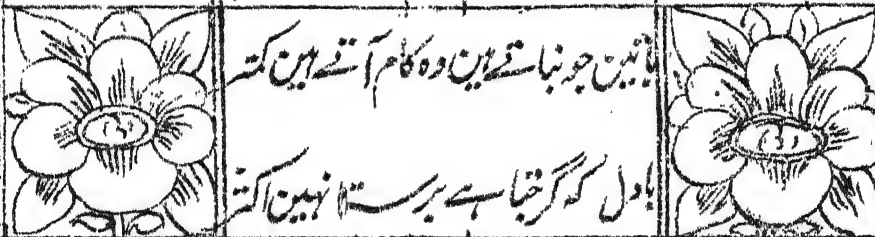 باتین جو بناتے ہین وہ کام آتے ہین کمتر
بادل کہ گرجتا ہے برستا نہین اکثر